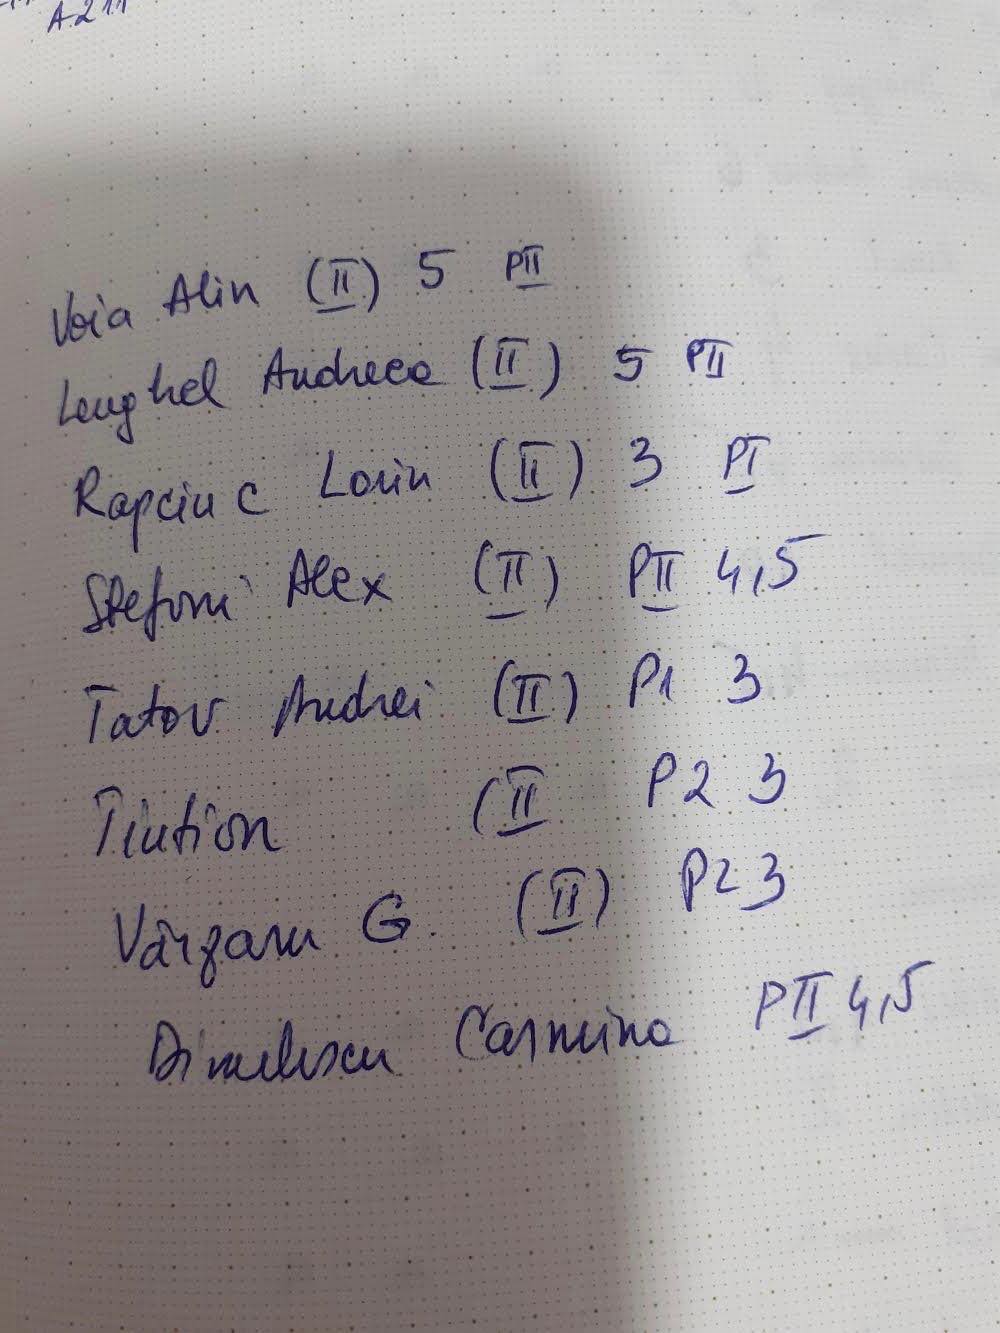 A211
Voia Alin (II) 5 PII
Lenghel Andreea (II) 5 PII
Rapciuc Lorin (II) 3 PI
Stefoni Alex (II) PII 4,5
Tatov Andrei (II) P1 3
(II P2 3
G. (II) P2 3
Carmina PII 4,5